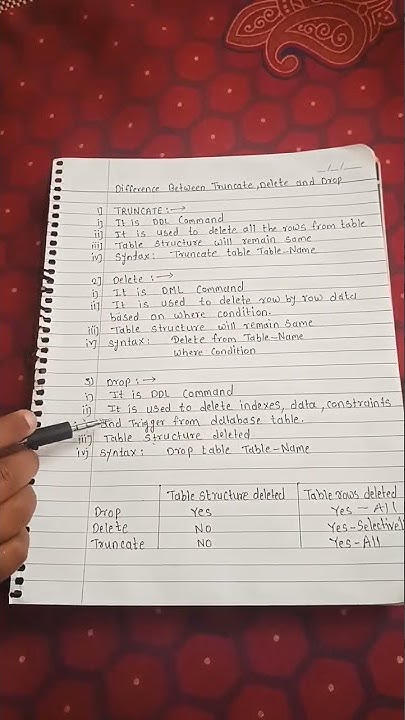 _/_/__
Difference Between Truncate, Delete and Drop
1) TRUNCATE :→
i) It is DDL Command
ii) It is used to delete all the rows from table
iii) Table structure will remain same
iv) Syntax: Truncate table Table-Name
2) Delete :→
i) It is DML Command
ii) It is used to delete row by row data
based on where condition.
iii) Table structure will remain same
iv) Syntax: Delete from Table-Name
Where Condition
3) Drop :→
i) It is DDL Command
ii) It is used to delete indexes, data, constraints
and Trigger from database table.
iii) Table structure deleted.
iv) Syntax: Drop table Table-Name
Table structure deleted Table rows deleted
Drop Yes Yes - All
Delete No Yes-Selectivel
Truncate No Yes-All